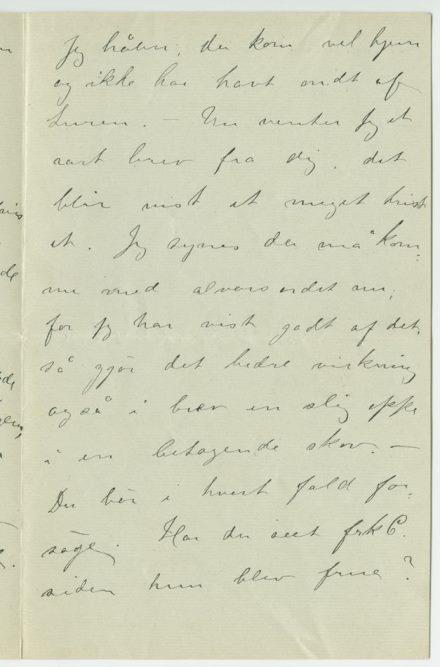 Jeg håber, du kom vel hjem
og ikke har havt ondt af
turen. – Nu venter jeg et
snart brev fra dig, det
blir vist et meget trist
et. Jeg synes du må kom-
me med alvorsordet nu,
for jeg har vist godt af det,
så gjør det bedre virkning
også i brev en slig oppe
i en betagende skov. –
Du bør i hvert fald for-
søge. Har du seet frk C.
siden hun blev frue?